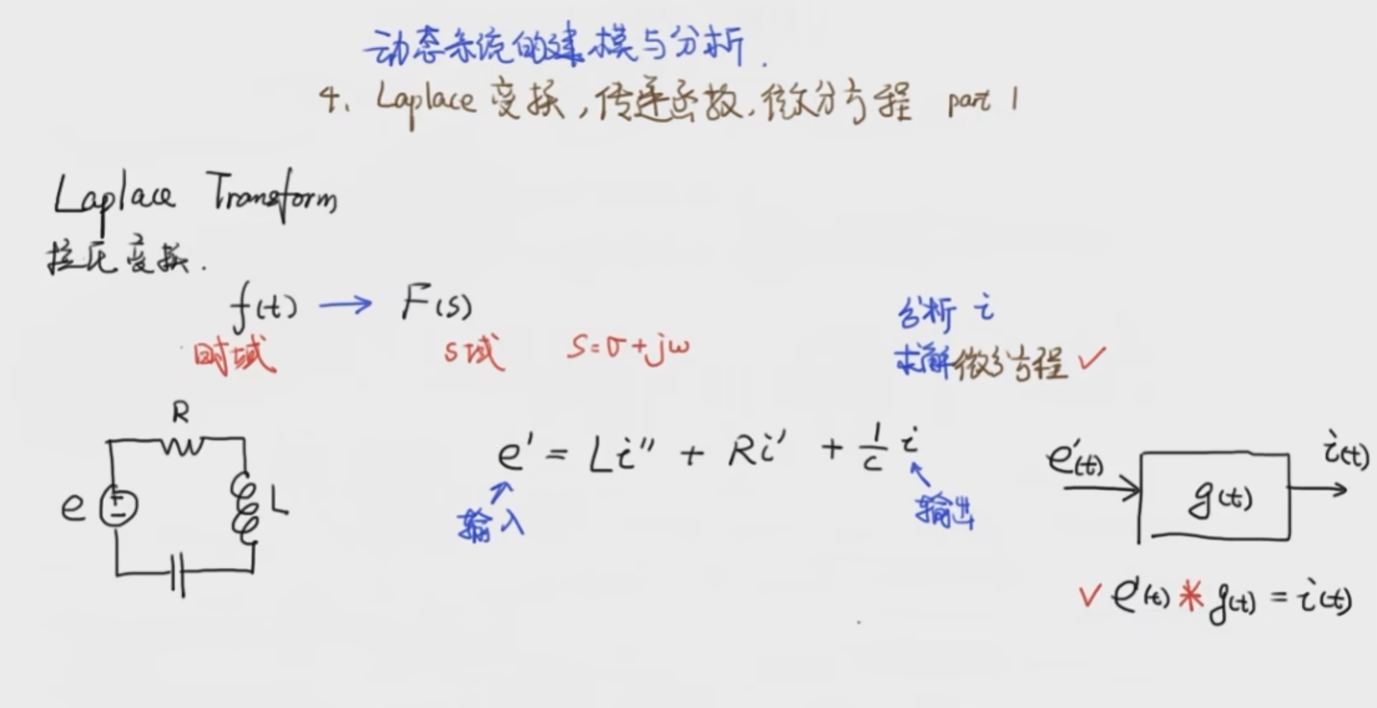 动态系统的建模与分析.
4. Laplace 变换,传递函数.微分方程 part 1
Laplace Transform
拉氏变换.
f(t) → F(s)
时域 s域 s=σ+jω
分析 i
求解微分方程 ✓
R
e
L
e' = Li" + Ri' + 1/c i
输入
输出
e'(t)
g(t)
i(t)
✓ e'(t) * g(t) = i(t)